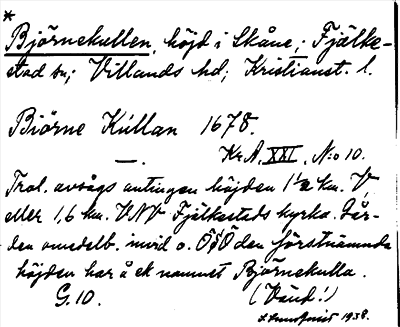 *
Björnekullen, höjd i Skåne; Fjälke-
stad sn; Villands hd; Kristianst. l.
Biörne Kúllan 1678.
—. Kr. A. XXI, N:o 10.
Trol. avsågs antingen höjden 1 1/2 km. V,
eller 1,6 km. VNV Fjälkestads kyrka. Går-
den omedelb. invid o. ÖSÖ den förstnämnda
höjden har å ek namnet Björnekulla.
G. 10. (Vänd!)
1938.